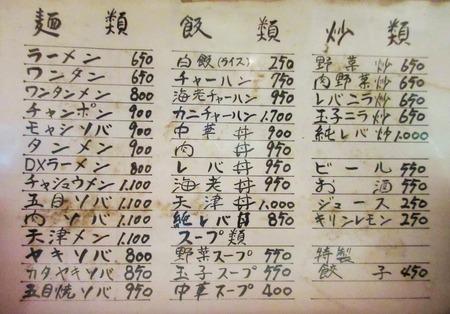 麺類
ラーメン 650
ワンタン 650
ワンタンメン 800
チャンポン 900
モヤシソバ 900
タンメン 900
DXラーメン 800
チャシュウメン 1.100
五目ソバ 1.100
肉ソバ 1.100
天津メン 1.100
ヤキソバ 800
カタヤキソバ 850
五目焼ソバ 950
飯類
白飯(ライス) 250
チャーハン 750
海老チャーハン 950
カニチャーハン 1.700
中華丼 900
肉丼 950
レバ丼 950
海老丼 950
天津丼 1.000
純レバ丼 850
スープ類
野菜スープ 550
玉子スープ 550
中華スープ 400
炒類
野菜炒 650
肉野菜炒 650
レバニラ炒 650
玉子ニラ炒 650
純レバ炒 1.000
ビール 550
お酒 550
ジュース 250
キリンレモン 250
特製
餃子 450